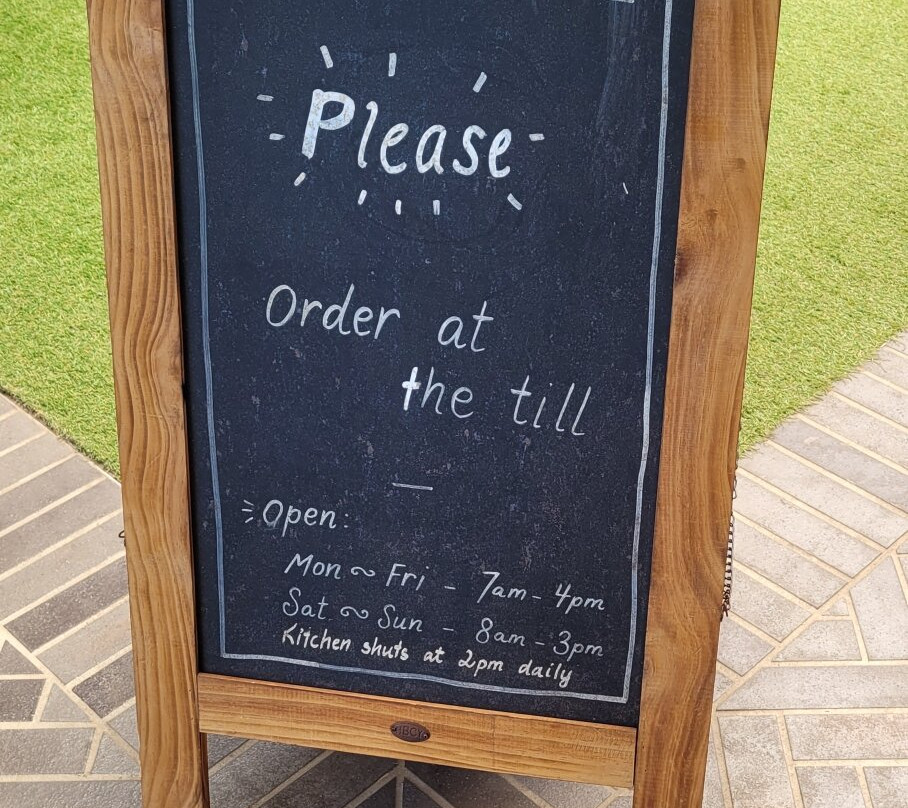 Please
Order at
the till
Open:
Mon ~ Fri - 7am - 4pm
Sat ~ Sun - 8am - 3pm
Kitchen shuts at 2pm daily